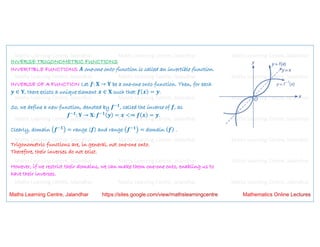 INVERSE TRIGONOMETRIC FUNCTIONS
INVERTIBLE FUNCTIONS: A one-one onto function is called an invertible function.
INVERSE OF A FUNCTION Let f: X → Y be a one-one onto function. Then, for each
y ∈ Y, there exists a unique element x ∈ X such that f(x) = y.
So, we define a new function, denoted by f⁻¹, called the inverse of f, as
f⁻¹: Y → X: f⁻¹(y) = x <=> f(x) = y.
Clearly, domain (f⁻¹) = range (f) and range (f⁻¹) = domain (f) .
Trigonometric functions are, in general, not one-one onto.
Therefore, their inverses do not exist.
However, if we restrict their domains, we can make them one-one onto, enabling us to
have their inverses.
y
y = f(x)
y = x
y = f⁻¹(x)
O
x
Maths Learning Centre, Jalandhar https://sites.google.com/view/mathslearningcentre Mathematics Online Lectures